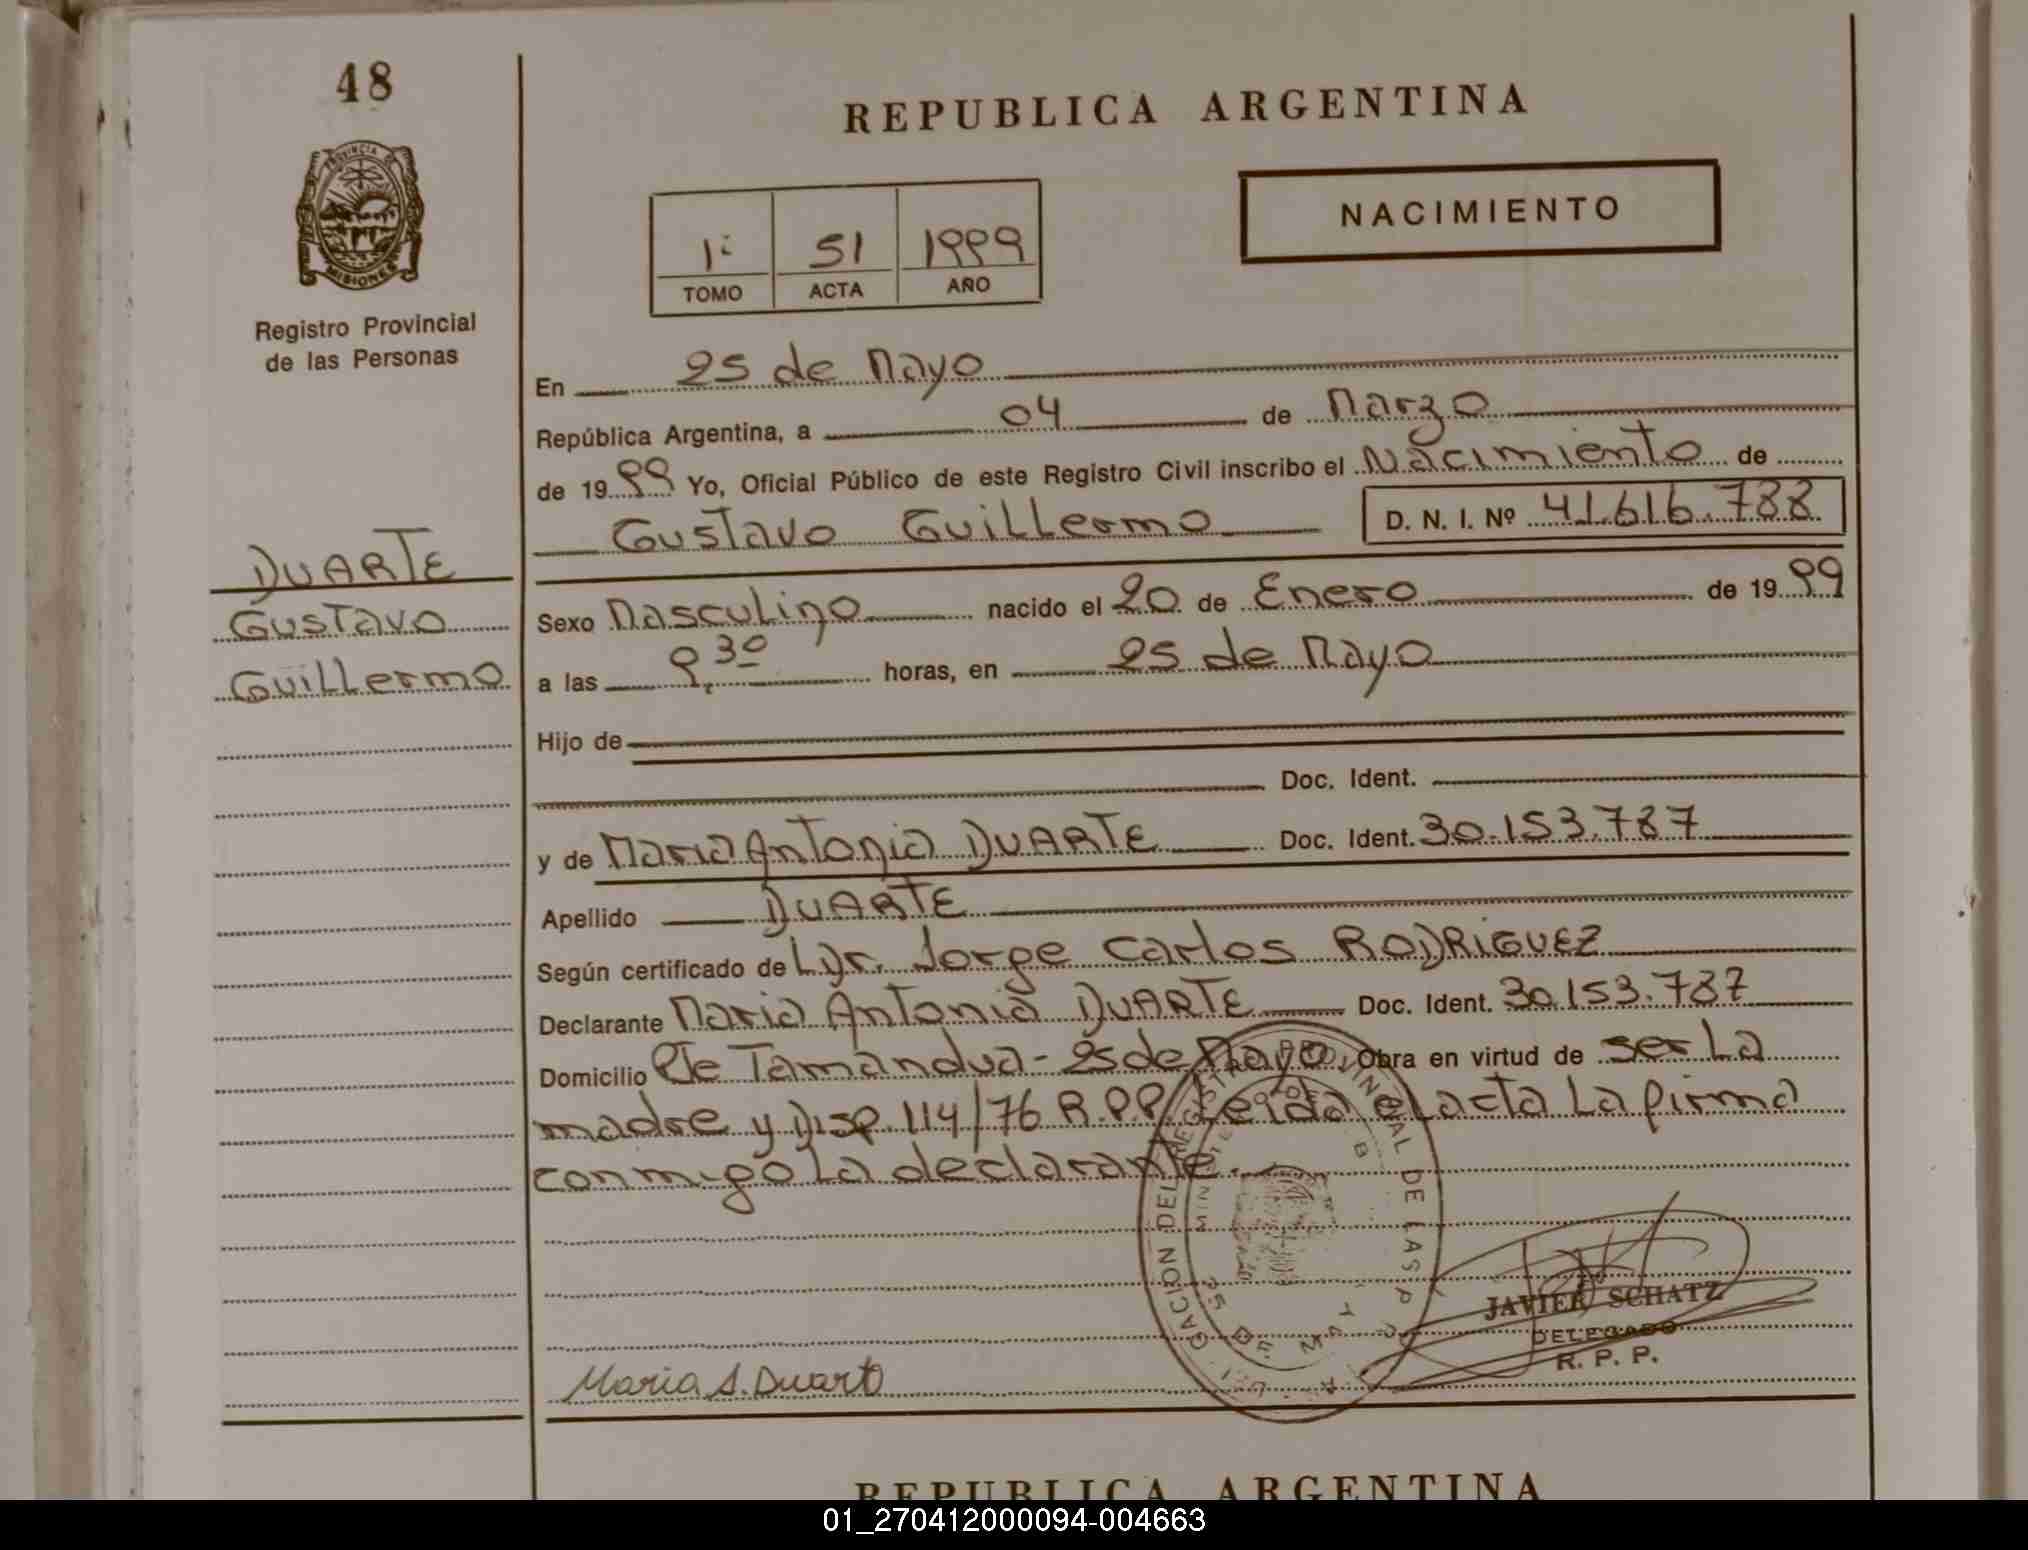 48
REPUBLICA ARGENTINA
PROVINCIA DE
MISIONES
NACIMIENTO
1º 51 1999
TOMO ACTA AÑO
Registro Provincial
de las Personas
En 25 de Mayo
República Argentina, a 04 de Marzo
de 1999 Yo, Oficial Público de este Registro Civil inscribo el Nacimiento de
Gustavo Guillermo D. N. I. Nº 41.616.788
DUARTE
Gustavo
Guillermo
Sexo Masculino nacido el 20 de Enero de 1999
a las 9,30 horas, en 25 de Mayo
Hijo de
Doc. Ident.
y de Maria Antonia DUARTE Doc. Ident. 30.153.787
Apellido DUARTE
Según certificado de Dr. Jorge Carlos RODRIGUEZ
Declarante Maria Antonia DUARTE Doc. Ident. 30.153.787
Domicilio Pte Tamandua - 25 de Mayo Obra en virtud de ser La
madre y Disp. 114/76 R.P.P. Leida el acta La firma
conmigo La declarante.
DEL REGISTRO PROVINCIAL DE LAS P
25 DE MAYO
JAVIER SCHATZ
DELEGADO
R. P. P.
Maria A. Duarte
REPUBLICA ARGENTINA
01_270412000094-004663